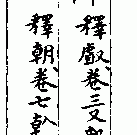 釋戲卷三又
釋朝卷七